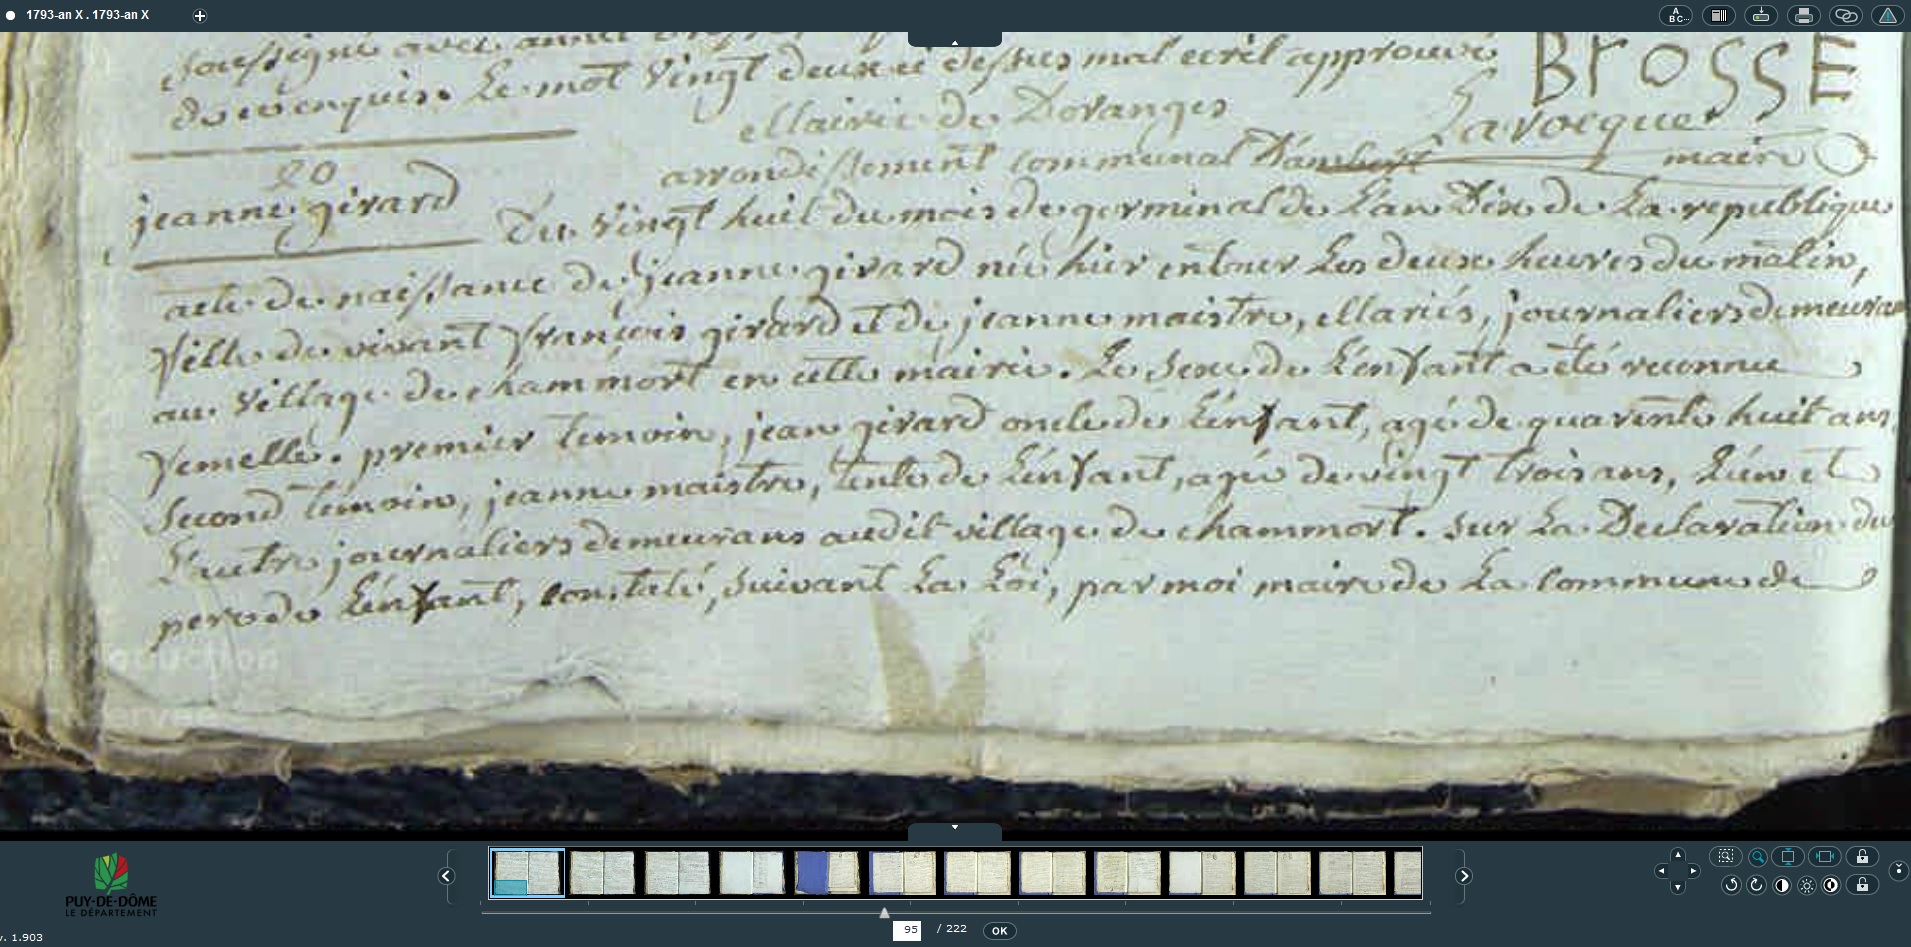 1793-an X . 1793-an X
A
B C...
soussigné avec
du ce enquis. Le mot Vingt deux ci dessus mal ecrit approuvé
BrOSSE
Mairie de Doranges
Lavocque
arrondissement communal D'ambert
maire
20
jeanne girard
Du Vingt huit du mois de germinal de L'an Dix de La republique
acte de naissance de jeanne girard née hier environ Les deux heures du matin,
fille de vivant françois girard et de jeanne maistre, Mariés, journaliers demeuran
au village de chammort en cette mairie. Le sexe de L'enfant a été reconnu
femelle. premier temoin, jean girard oncle de L'enfant, agé de quarente huit ans,
Second témoin, jeanne maistre, tente de L'enfant, agée de vingt trois ans, L'un et
L'autre journaliers demeurans audit village de chammort. Sur La Declaration du
pere de L'enfant, constaté, suivant La Loi, par moi maire de La commune de
PUY-DE-DÔME
LE DÉPARTEMENT
95 / 222 OK
v. 1.903